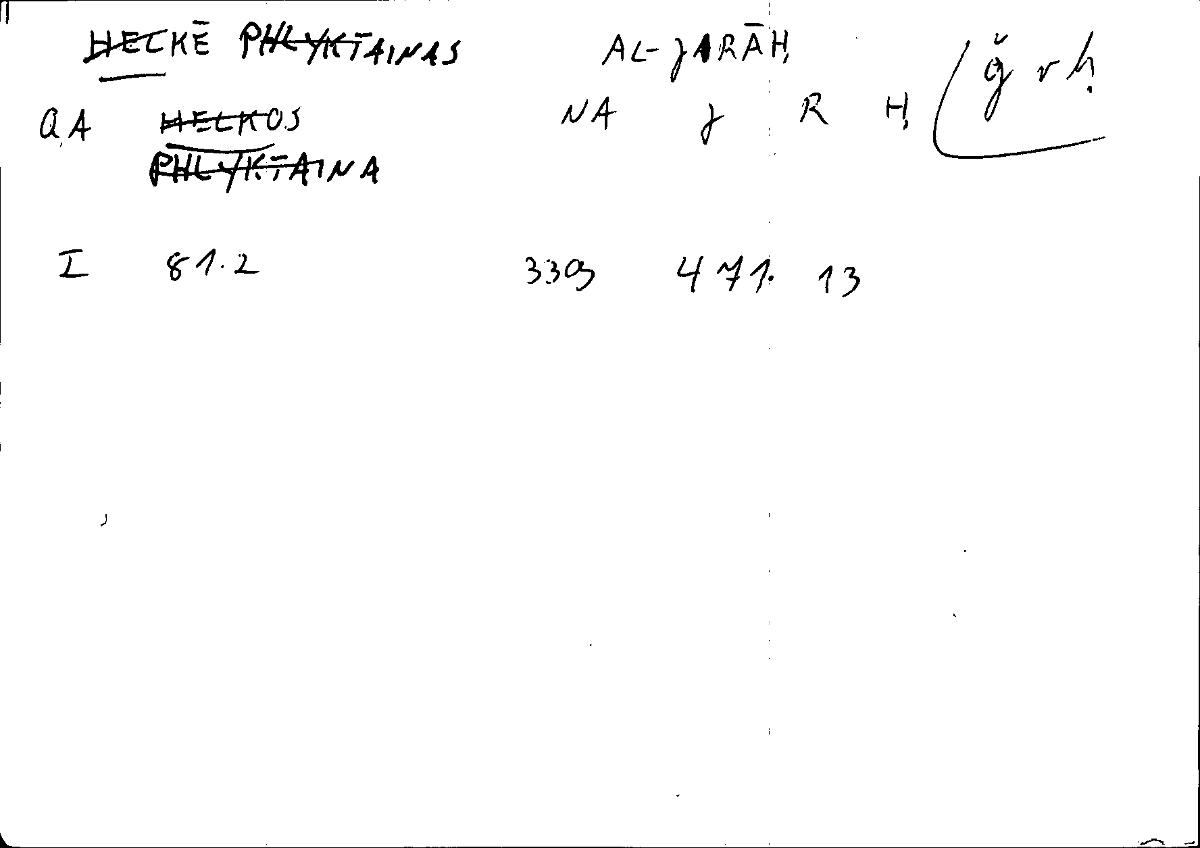 HELKĒ PHLYKTAINAS AL-JARĀḤ
Q.A HELKOS NA J R Ḥ ǧ r ḥ
PHLYKTAINA
I 81.2 3309 471. 13